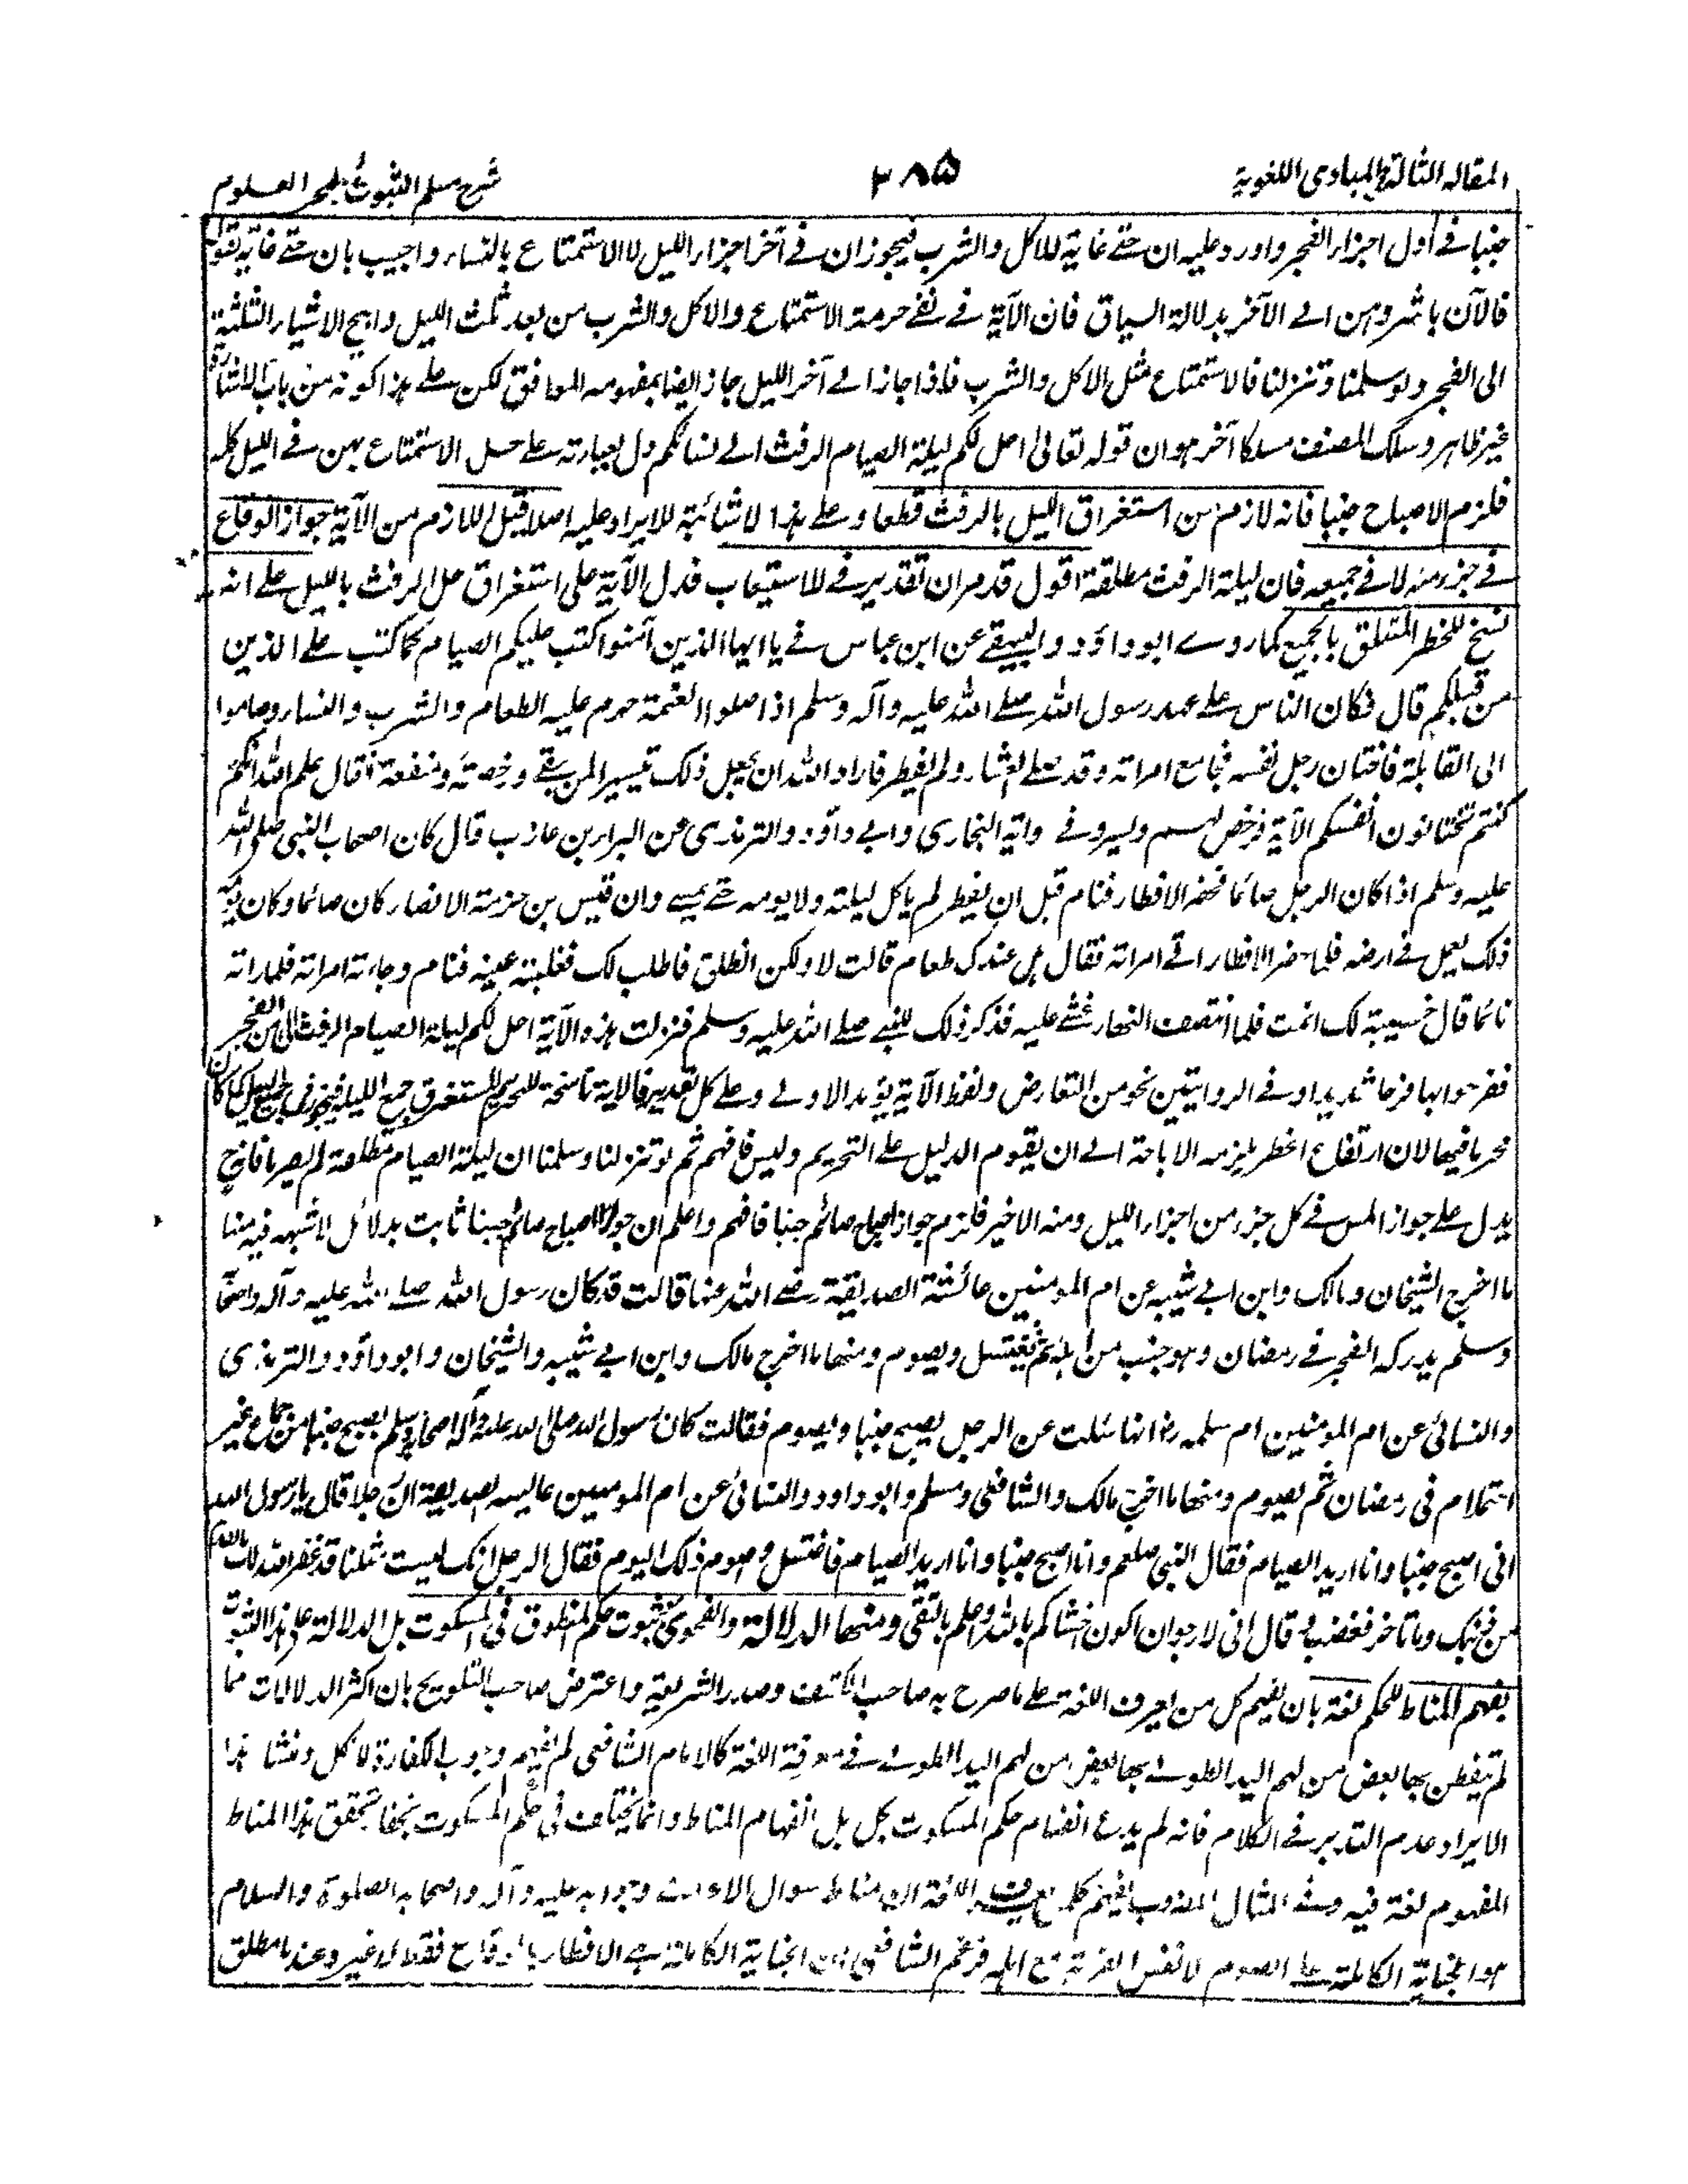 المقالة الثالثة في المبادى اللغوية
٣٨٥
شرح مسلم الثبوت لبحر العلوم
جنبا فى أول اجزاء الفجر واورد عليه ان حتى غاية للاكل والشرب فيجوز ان فى آخر اجزاء الليل لا الاستمتاع بالنساء واجيب بان حتى غاية لقوله
فالآن باشروهن الى الآخر بدلالة السياق فان الآية فى نفى حرمة الاستمتاع والاكل والشرب من بعد ثلث الليل وابيح الاشياء الثلثة
الى الفجر ولو سلمنا وتنزلنا فالاستمتاع مثل الاكل والشرب فاذا جازا فى آخر الليل جاز ايضا بمفهومه الموافق لكن على هذا كونه من باب الاشارة
غير ظاهر وسلك المصنف مسلكا آخر هو ان قوله تعالى احل لكم ليلة الصيام الرفث الى نسائكم دل بعبارته على حل الاستمتاع بهن فى الليل كله
فلزم الاصباح جنبا فانه لازم من استغراق الليل بالرفث قطعا وعلى هذا لا شائبة للايراد عليه اصلا قيل اللازم من الآية جواز الوقاع
فى جزء منه لا فى جميعه فان ليلة الرفث مطلقة اقول قد مر ان تقدير فى للاستيعاب فدل الآية على استغراق حل الرفث بالليل على انه
نسخ للحظر المتعلق بالجميع كما روى ابو داؤد والبيهقى عن ابن عباس فى يا ايها الذين آمنوا كتب عليكم الصيام كما كتب على الذين
من قبلكم قال فكان الناس على عهد رسول الله صلى الله عليه وآله وسلم اذا صلوا العتمة حرم عليه الطعام والشرب والنساء وصاموا
الى القابلة فاختان رجل نفسه فجامع امراته وقد صلى العشاء ولم يفطر فاراد الله ان يجعل ذلك تيسيرا لمن بقى ورخصة ومنفعة فقال علم الله انكم
كنتم تختانون انفسكم الآية فرخص لهم ويسر وفى واية البخارى وابى داؤد والترمذى عن البراء بن عازب قال كان اصحاب النبى صلى الله
عليه وسلم اذا كان الرجل صائما فحضر الافطار فنام قبل ان يفطر لم ياكل ليلته ولا يومه حتى يمسى وان قيس بن صرمة الانصار كان صائما وكان يومه
ذلك يعمل فى ارضه فلما حضر الافطار اتى امراته فقال هل عندك طعام قالت لا ولكن انطلق فاطلب لك فغلبته عينه فنام وجاءته امراته فلما راته
نائما قال خيبة لك انمت فلما انتصف النهار غشى عليه فذكر ذلك للنبى صلى الله عليه وسلم فنزلت هذه الآية احل لكم ليلة الصيام الرفث الى من الفجر
ففرحوا بها فرحا شديدا وفى الروايتين نحو من التعارض ولفظ الآية يؤيد الاولى وعلى كل تقدير فالآية ناسخة للتحريم المستغرق جميع الليلة فيجوز فى جميع الليل كما كان
محرما فيها لان ارتفاع الحظر يلزمه الاباحة الى ان يقوم الدليل على التحريم وليس فافهم ثم لو تنزلنا وسلمنا ان ليلة الصيام مطلقة لم يضرنا فانه
يدل على جواز المس فى كل جزء من اجزاء الليل ومنه الاخير فلزم جواز اصباح صائم جنبا فافهم واعلم ان جواز اصباح صائم جنبا ثابت بدلائل لا شبهه فيه منها
ما اخرج الشيخان ومالك وابن ابى شيبه عن ام المومنين عائشة الصديقة رضى الله عنها قالت قد كان رسول الله صلى الله عليه وآله واصحابه
وسلم يدركه الفجر فى رمضان وهو جنب من اهله ثم يغتسل ويصوم ومنها ما اخرج مالك وابن ابى شيبه والشيخان وابو داؤد والترمذى
والنسائى عن ام المومنين ام سلمه رض انها سئلت عن الرجل يصبح جنبا ويصوم فقالت كان رسول الله صلى الله عليه وآله واصحابه وسلم يصبح جنبا من جماع غير
احتلام فى رمضان ثم يصوم ومنها ما اخرج مالك والشافعى ومسلم وابو داود والنسائى عن ام المومنين عائشه الصديقة ان رجلا قال يا رسول الله
انى اصبح جنبا وانا اريد الصيام فقال النبى صلعم وانا اصبح جنبا وانا اريد الصيام فاغتسل واصوم ذلك اليوم فقال الرجل انك لست مثلنا قد غفر الله لك ما تقدم
من ذنبك وما تاخر فغضب وقال انى لارجو ان اكون اخشاكم بالله واعلم بما اتقى ومنها الدلالة والفحوى ثبوت حكم المنطوق فى المسكوت بل الدلالة على هذا الثبوت
بفهم المناط للحكم لغة بان يفهم كل من يعرف اللغة على ما صرح به صاحب الكشف وصدر الشريعة واعترض صاحب التلويح بان اكثر الدلالات مما
لم يتفطن بها بعض من لهم اليد الطولى فى معرفة اللغة كالامام الشافعى لم يفهم وجوب الكفارة لاكل ومنشا هذا
الايراد عدم التدبر فى الكلام فانه لم يدع انفهام حكم المسكوت بكل بل انفهام المناط وانما يختلف فى حكم المسكوت بخفاء تحقق هذا المناط
المفهوم لغة فيه وفى المثال المضروب يفهم كل من يعرف اللغة ان مناط سوال الاعرابى وجوابه عليه وآله واصحابه الصلوة والسلام
هو الجناية الكاملة على الصوم لا نفس المقاربة مع اهله فزعم الشافعى ان الجناية الكاملة هى الافطار بالوقاع فقط لا غير وعندنا مطلق